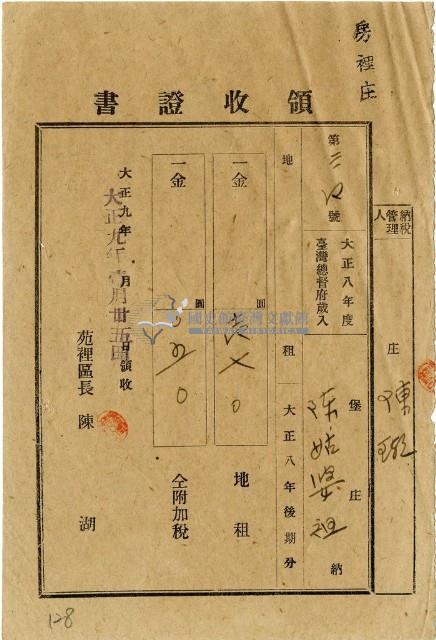 房裡庄
領收證書
納稅管理人
庄
陳
第 號
大正八年度
臺灣總督府歲入
堡
庄
陳姑婆祖
納
地
租
大正八年後期分
一金
圓
地租
一金
圓
仝附加稅
大正九年 月 日領收
大正九年壹月廿五日
苑裡區長 陳 湖
國史館臺灣文獻館
128